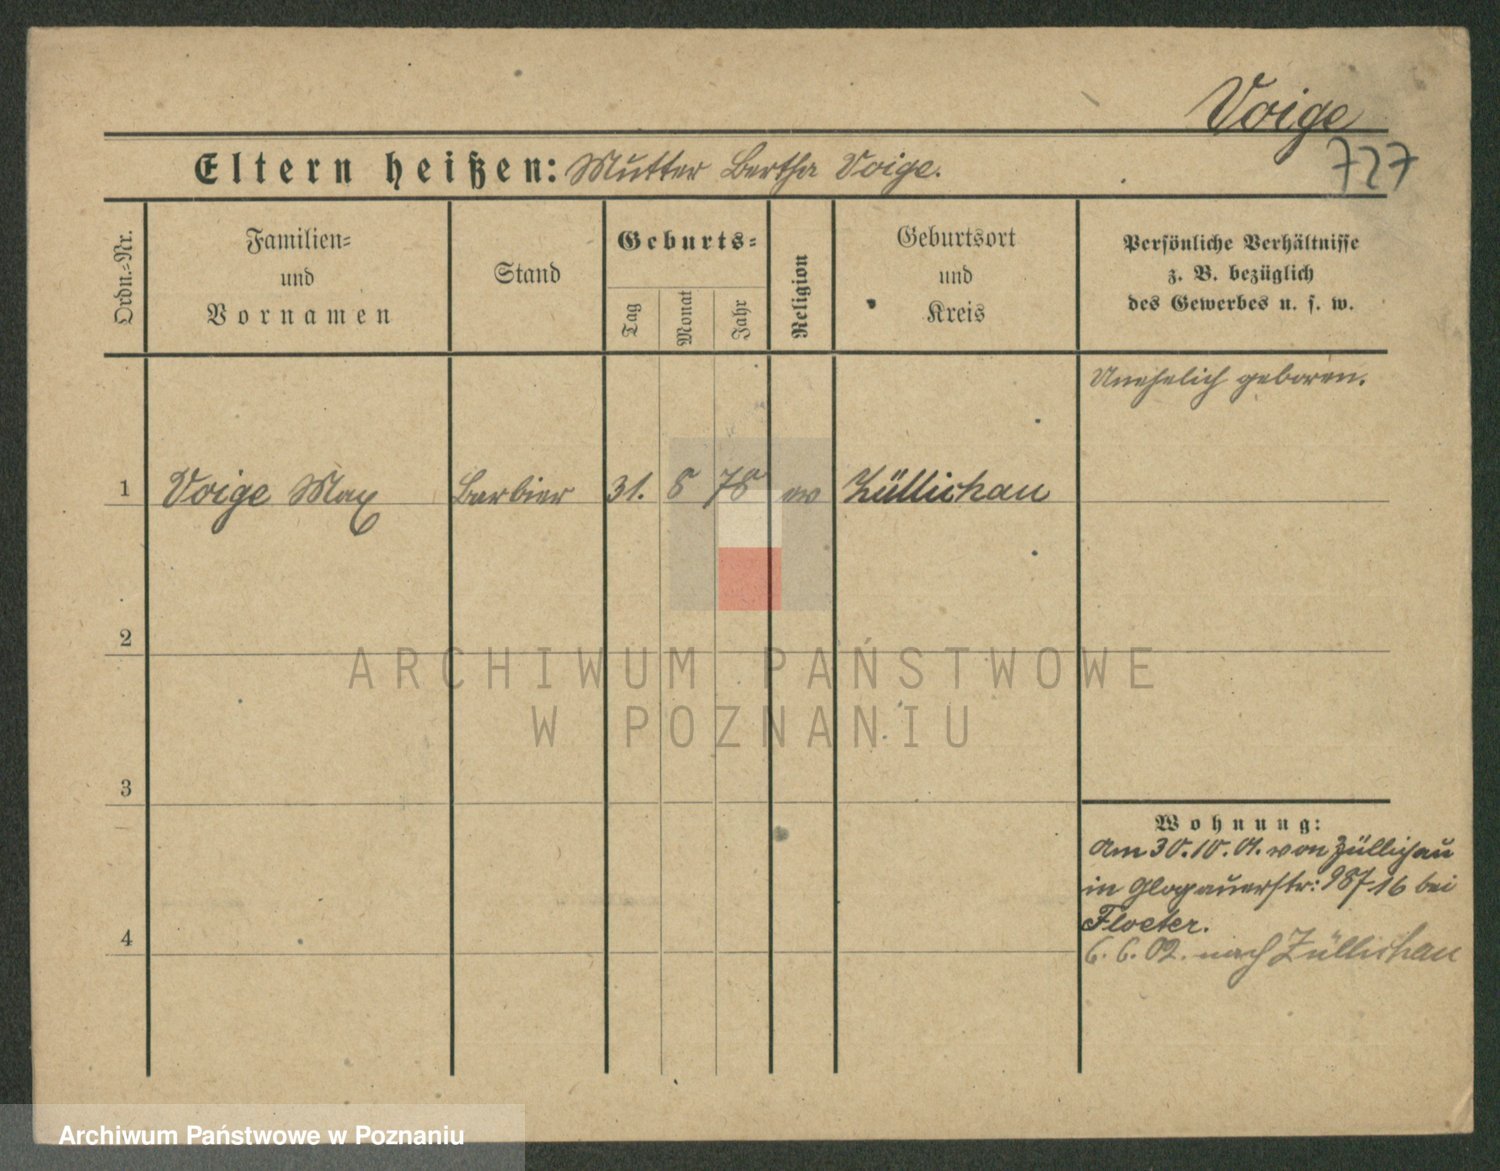 Voige
727
Eltern heißen: Mutter Bertha Voige.
Ordn.-Nr.
Familien-
und
Vornamen
Stand
Geburts-
Tag
Monat
Jahr
Religion
Geburtsort
und
Kreis
Persönliche Verhältnisse
z. B. bezüglich
des Gewerbes u. s. w.
Unehelich geboren.
1 Voige Max Barbier 31. 8 78 ev Züllichau
2
3
4
Wohnung:
Am 30.10.01. von Züllichau
in Glogauerstr: 987 16 bei
Floeter.
6. 6. 02. nach Züllichau
ARCHIWUM PAŃSTWOWE
W POZNANIU
Archiwum Państwowe w Poznaniu